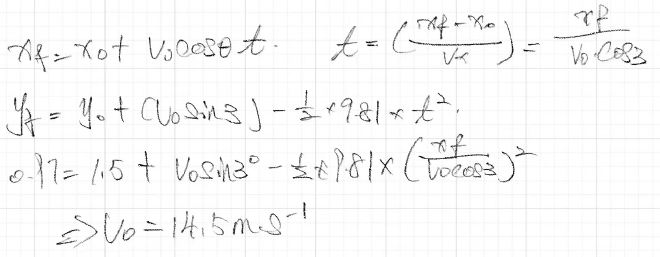 xf = x0 + V0cosθ t. t = ((xf - x0)/Vx) = xf/(V0·Cos3)
yf = y0 + (V0sin3) - ½ × 9.81 × t².
0.97 = 1.5 + V0sin3° - ½ × 9.81 × (xf/(V0cos3))²
⇒ V0 = 14.5ms⁻¹